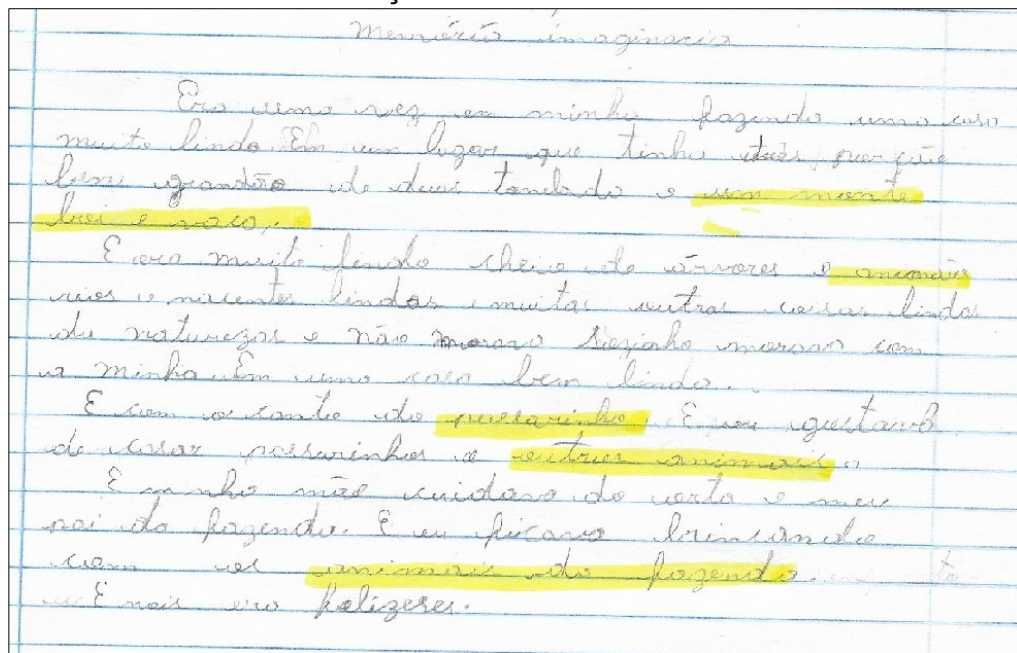 Memória imaginacia
Era uma vez em minha fazenda uma casa
muito lindo Em um lugar que tinha três, porque
bem grandão de duas tonelada e um monte
boi e vaca,
E era muito lindo cheio de árvores e animais
rios e nacentes lindas muitas outras coisas linda
da naturezas e não morava Sozinho morava com
a minha Em uma casa bem lindo.
E com o canto do passarinho E eu gustava
de casar passarinhos e outros animais.
E minha mãe cuidava da horta e meu
pai da fazenda. E eu ficava brincando
com os animais da fazenda.
E nois era felizeres.